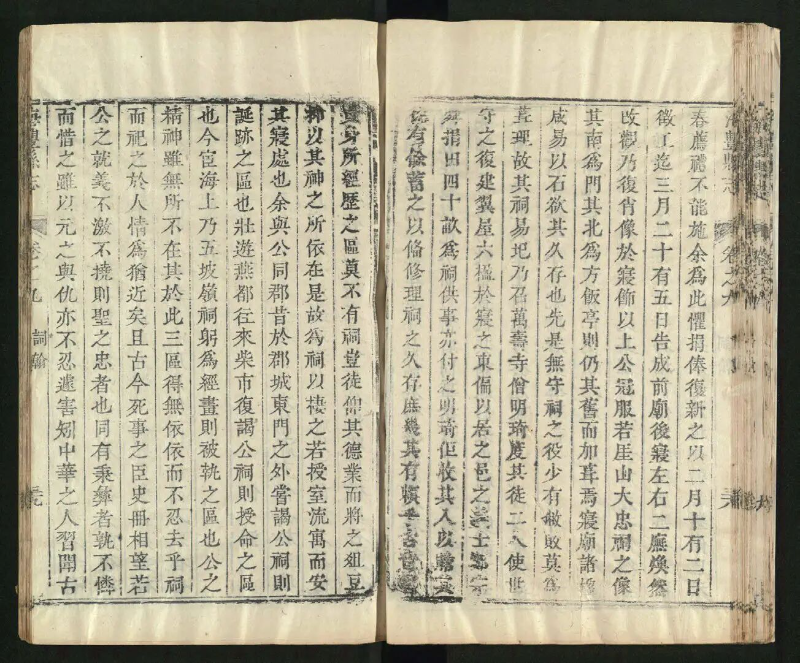 海豐縣志
春薦禮不能施余為此懼捐俸復新之以二月十有二日
徵工迄三月二十有五日告成前廟後寢左右二廡煥然
改觀乃復肖像於寢飾以上公冠服若厓山大忠祠之像
其南為門其北為方飯亭則仍其舊而加葺焉寢廟諸
咸易以石欲其久存也先是無守祠之役少有敝敗莫為
葺理故其祠易圯乃召萬壽寺僧明琦度其徒二人使世
守之復建製屋六楹於寢之東偏以居之邑之
捐田四十畝為祠供事亦付之明琦佢收其入以
有餘蓄之以俻修理祠之久存庶幾其有
身所經歷之區莫不有祠豈徒仰其德業而將之俎豆
以其神之所依在是故為祠以棲之若授室流寓而安
其寢處也余與公同郡昔於郡城東門之外嘗謁公祠則
誕跡之區也壯遊燕都往來柴市復謁公祠則授命之區
也今宦海上乃五坡嶺祠躬為經畫則被執之區也公之
精神雖無所不在其於此三區得無依依而不忍去乎祠
而祀之於人情為猶近矣且古今死事之臣史冊相望若
公之就義不激不撓則聖之忠者也同有秉彝者孰不憐
而惜之雖以元之與仇亦不忍遽害矧中華之人習聞古
海豐縣志 卷之九 詞翰